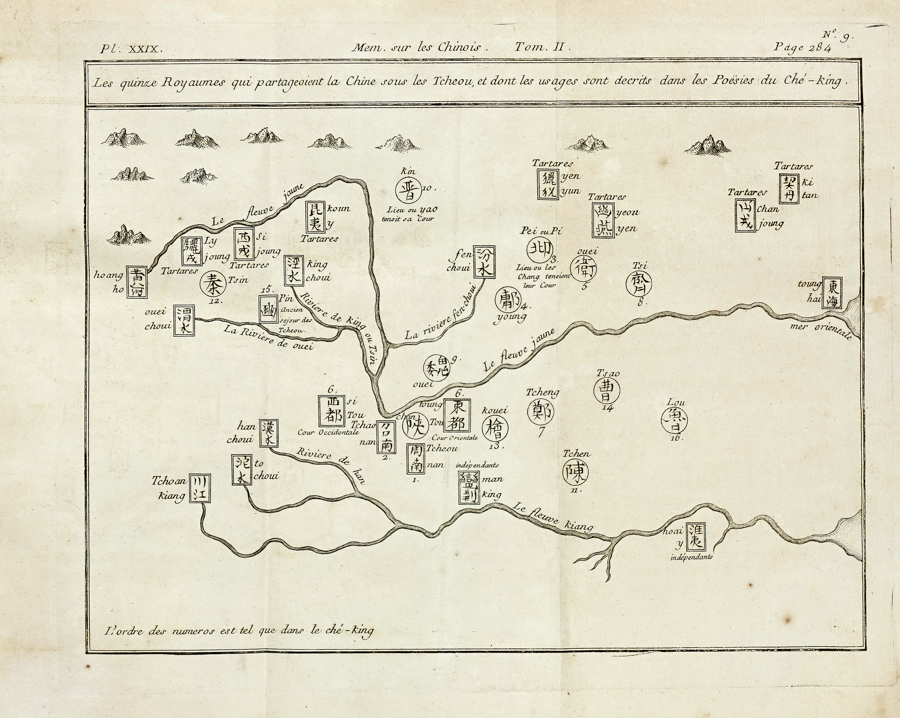 Pl. XXIX.
Mem. sur les Chinois. Tom. II.
N.º 9.
Page 284
Les quinze Royaumes qui partageoient la Chine sous les Tcheou, et dont les usages sont decrits dans les Poésies du Ché-king.
kin
晋
10.
Lieu ou yao
tenoit sa Cour
Tartares
yen
yun
Tartares
幽
燕
yeou
yen
Tartares
山
戎
chan
joung
Tartares
契
丹
ki
tan
Le fleuve jaune
昆
夷
koun
y
Tartares
Ly
joung
Tartares
西
戎
Si
joung
Tartares
涇
水
king
choui
hoang
ho
黄
河
秦
Tsin
12.
15.
Pin
Ancien
sejour des
Tcheou.
ouei
choui
渭
水
La Riviere de ouei
Riviere de king ou Tsin
fen
choui
汾
水
La riviere fen-choui
Pei ou Pi
邶
3.
Lieu ou les
Chang tenoient
leur Cour
ouei
衛
5
鄘
4.
young
Tsi
齊
8.
toung
hai
東
海
mer orientale
Le fleuve jaune
魏
9.
ouei
6.
西
都
si
Tou
Cour Occidentale
Tchao
nan
召
南
2.
chan
陝
6.
toung
Tou
東
都
Cour Orientale
kouei
檜
13.
Tcheng
鄭
7
Tsao
曹
14
Lou
魯
16.
周
南
Tcheou
nan
1.
indépendants
蠻
荆
man
king
Tchen
陳
11.
han
choui
漢
水
Riviere de han
沱
水
to
choui
Tchoan
kiang
川
江
Le fleuve kiang
hoai
y
淮
夷
indépendants
L'ordre des numeros est tel que dans le ché-king